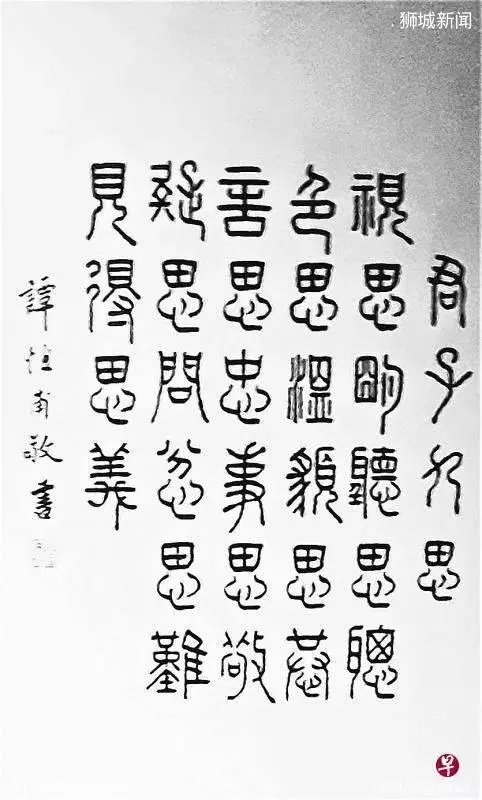 狮城新闻
君子九思
視思明聽思聰
色思溫貌思恭
言思忠事思敬
疑思問忿思難
見得思義
譚恒甫敬書
早